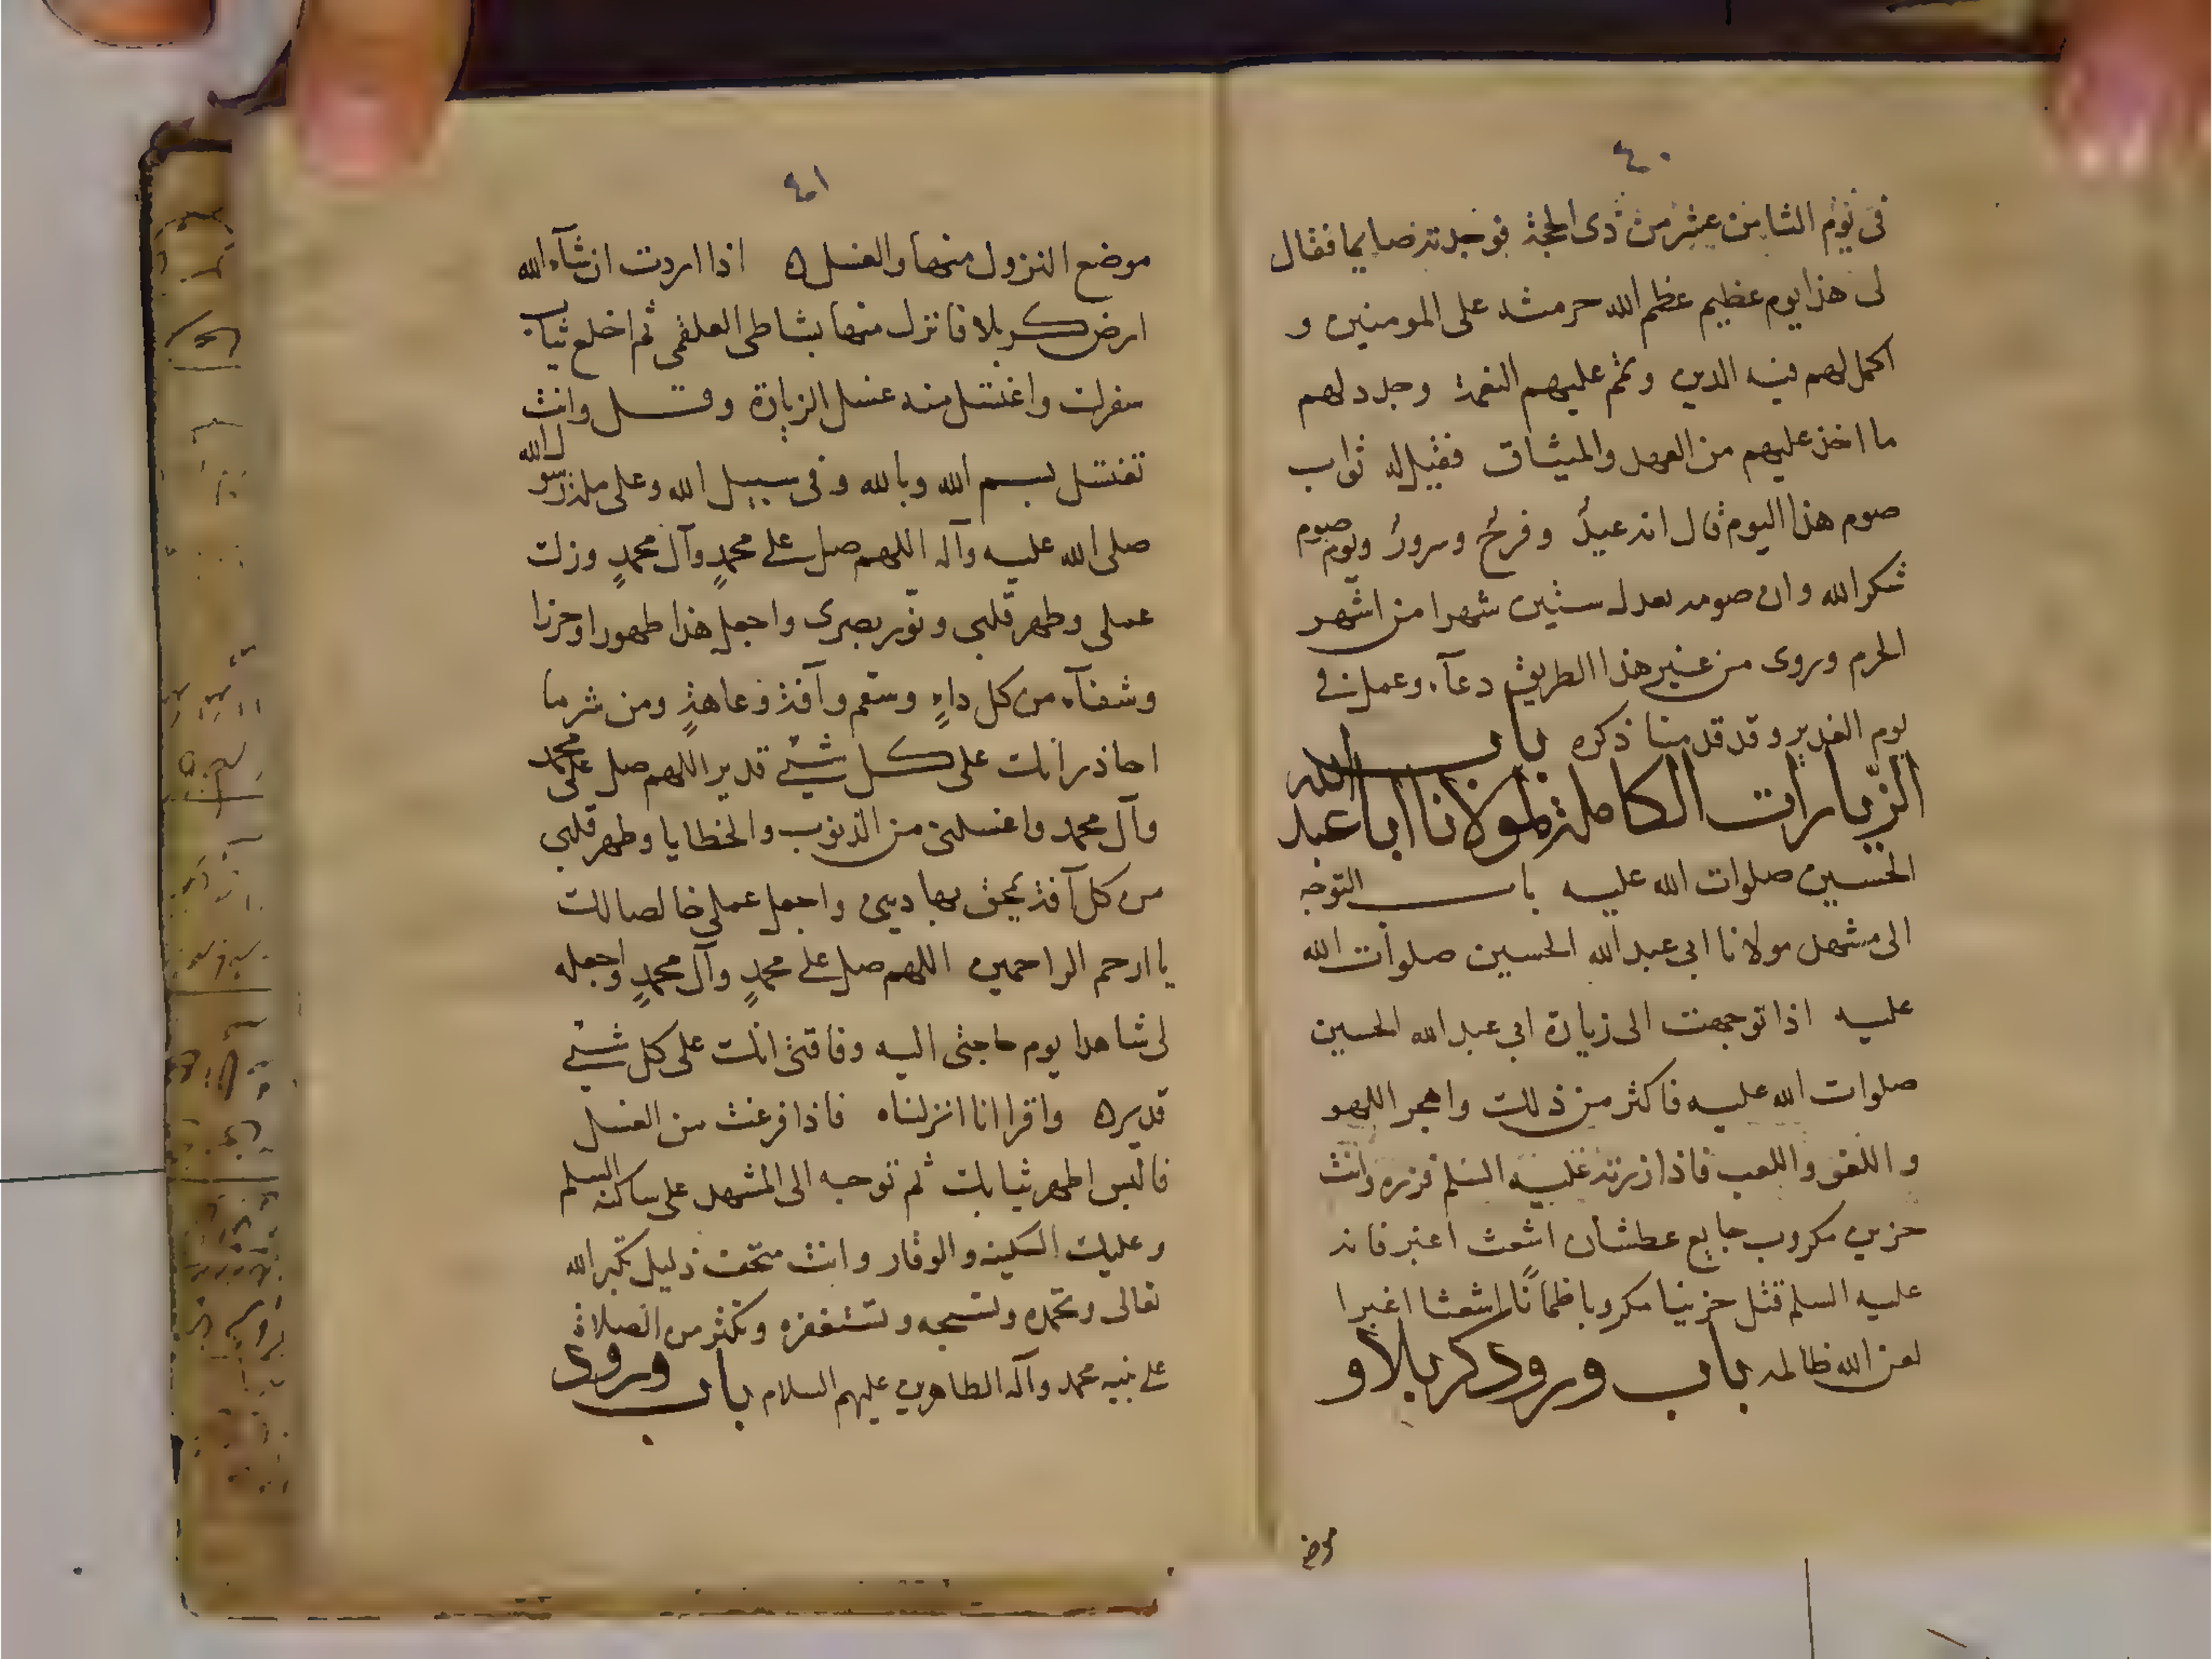 ٤٠
فى يوم الثامن عشر من ذى الحجة فوجدته صايما فقال
لى هذا يوم عظيم عظم الله حرمته على المومنين و
اكمل لهم فيه الدين وتمم عليهم النعمة وجدد لهم
ما اخذ عليهم من العهد والميثاق فقيل له ثواب
صوم هذا اليوم قال انه عيدٌ وفرحٌ وسرورٌ ويوم صوم
شكرا لله وان صومه يعدل ستين شهرا من اشهر
الحرم وروى من غير هذا الطريق دعآء وعمل فى
يوم الغدير وقد قدمنا ذكره باب
الزيارات الكاملة لمولانا ابا عبد الله
الحسين صلوات الله عليه باب التوجه
الى مشهد مولانا ابى عبد الله الحسين صلوات الله
عليه اذا توجهت الى زيارة ابى عبد الله الحسين
صلوات الله عليه فاكثر من ذلك واهجر اللهو
و اللغو واللعب فاذا زرته عليه السلم فزره وانت
حزين مكروب جايع عطشان اشعث اغبر فانه
عليه السلم قتل حزينا مكروبا ظمآنًا اشعثا اغبرا
لعن الله ظالمه باب ورود كربلا و
موضع
٤١
موضع النزول منها والغسل ه اذا اردت انشآء الله
ارض كربلا فانزل منها بشاطى العلقمى ثم اخلع ثياب
سفرك واغتسل منه غسل الزيارة وقل وانت
تغتسل بسم الله وبالله وفى سبيل الله وعلى ملة رسول الله
صلى الله عليه وآله اللهم صل على محمدٍ وآل محمدٍ وزك
عملى وطهر قلبى ونور بصرى واجعل هذا طهورا وحرزا
وشفآء من كل داءٍ وسقم وآفة وعاهةٍ ومن شر ما
احاذر انك على كل شئ قدير اللهم صل على محمد
وآل محمد واغسلنى من الذنوب والخطايا وطهر قلبى
من كل آفة يمحق بها دينى واجعل عملى خالصا لك
يا ارحم الراحمين اللهم صل على محمدٍ وآل محمدٍ واجعله
لى شاهدا يوم حاجتى اليه وفاقتى انك على كل شئ
قدير ه واقرا انا انزلناه فاذا فرغت من الغسل
فالبس اطهر ثيابك ثم توجه الى المشهد على ساكنه السلم
وعليك السكينة والوقار وانت متحف ذليل تكبر الله
تعالى وتحمده وتسبحه وتستغفره وتكثر من الصلاة
على نبيه محمد وآله الطاهرين عليهم السلام باب ورود